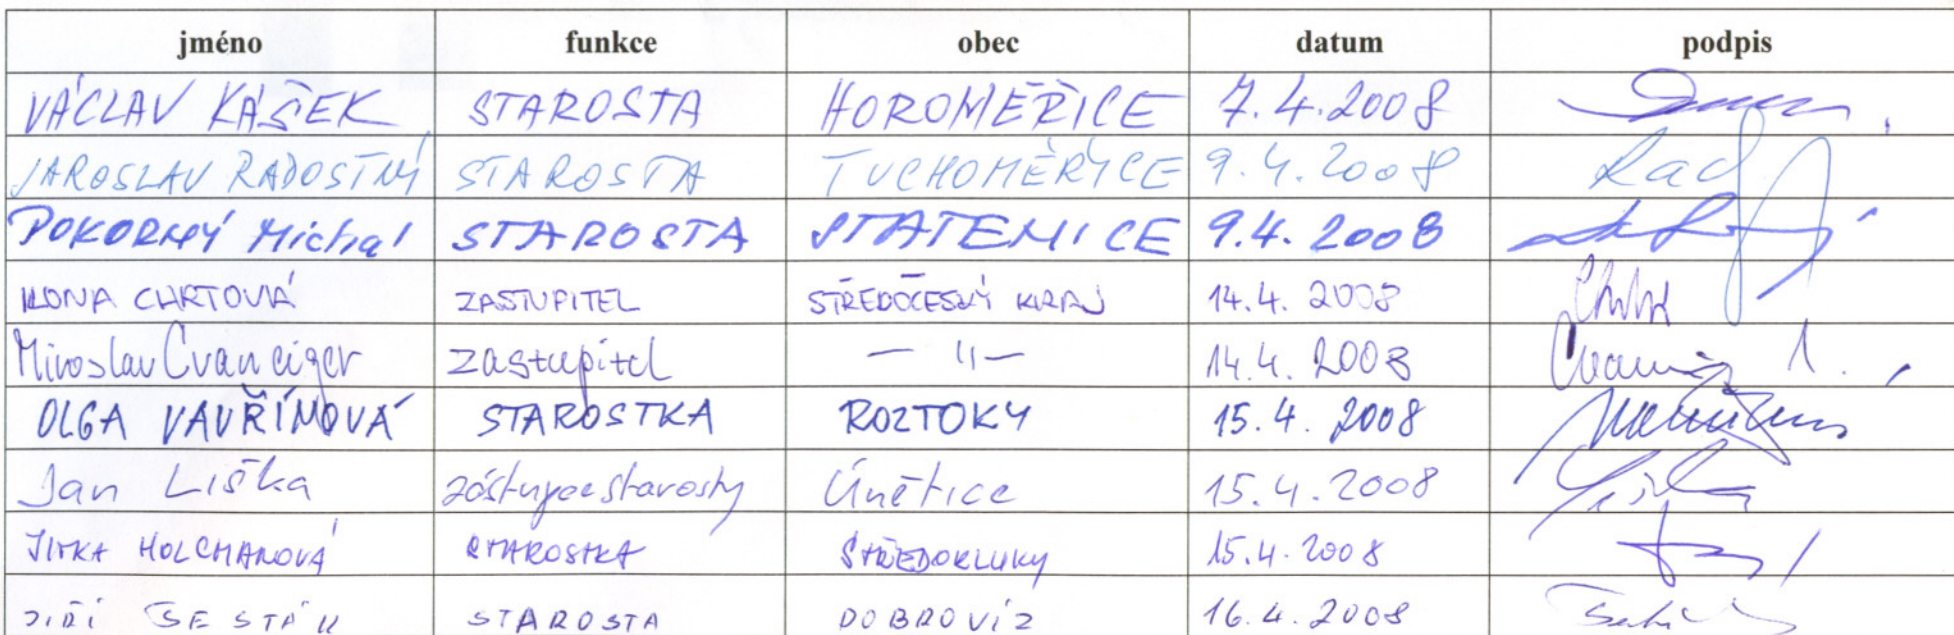 jméno funkce obec datum podpis
VÁCLAV KÁŠEK STAROSTA HOROMĚŘICE 7.4.2008
JAROSLAV RADOSTNÝ STAROSTA TUCHOMĚŘICE 9.4.2008 Rad
POKORNÝ Michal STAROSTA STATENICE 9.4.2008
ILONA CHRTOVÁ ZASTUPITEL STŘEDOČESKÝ KRAJ 14.4. 2008
Miroslav Cvanciger zastupitel — 11 — 14.4. 2008
OLGA VAVŘÍNOVÁ STAROSTKA ROZTOKY 15.4. 2008
Jan Liška zástupce starosty Únětice 15.4.2008
JITKA HOLCMANOVÁ STAROSTKA STŘEDOKLUKY 15.4.2008
JIŘÍ ŠESTÁK STAROSTA DOBROVÍZ 16.4.2008